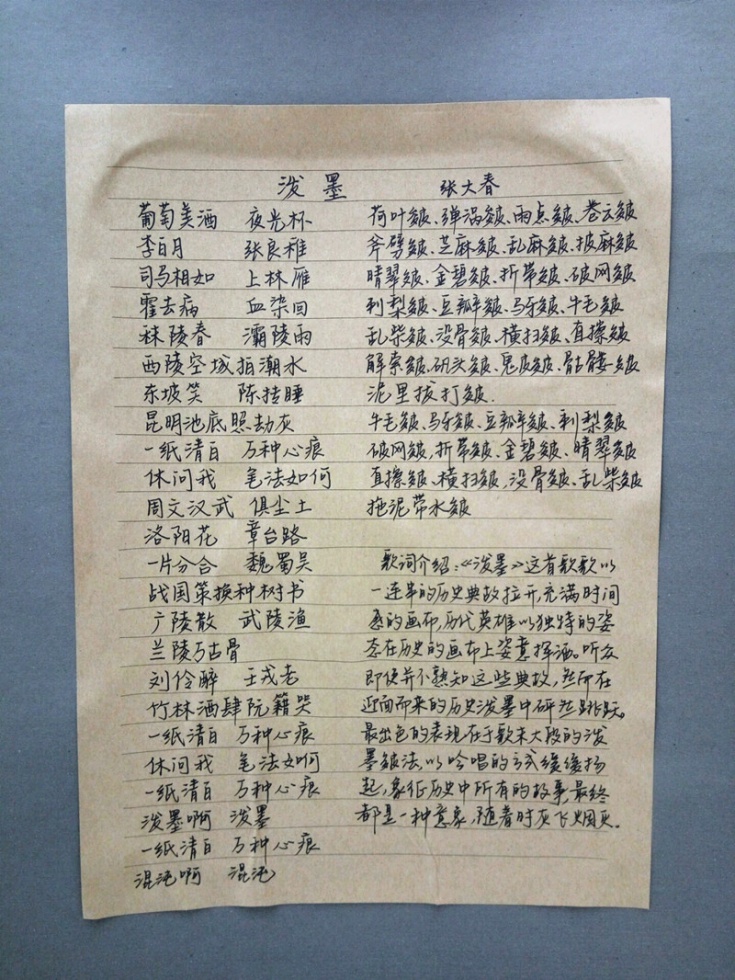 泼墨 张大春
葡萄美酒 夜光杯
李白月 张良椎
司马相如 上林雁
霍去病 血染回
秣陵春 灞陵雨
西陵空城拍潮水
东坡笑 陈抟睡
昆明池底照劫灰
一纸清白 万种心痕
休问我 笔法如何
周文汉武 俱尘土
洛阳花 章台路
一片分合 魏蜀吴
战国策换种树书
广陵散 武陵渔
兰陵万古骨
刘伶醉 王戎老
竹林酒肆阮籍哭
一纸清白 万种心痕
休问我 笔法如何
一纸清白 万种心痕
泼墨啊 泼墨
一纸清白 万种心痕
混沌啊 混沌
荷叶皴、弹涡皴、雨点皴、卷云皴
斧劈皴、芝麻皴、乱麻皴、披麻皴
晴翠皴、金碧皴、折带皴、破网皴
刺梨皴、豆瓣皴、马牙皴、牛毛皴
乱柴皴、没骨皴、横扫皴、直擦皴
解索皴、矾头皴、鬼皮皴、骷髅皴
泥里拔打皴.
牛毛皴、马牙皴、豆瓣皴、刺梨皴
破网皴,折带皴、金碧皴、晴翠皴
直擦皴、横扫皴,没骨皴、乱柴皴
拖泥带水皴
歌词介绍:《泼墨》这首歌歌以
一连串的历史典故拉开,充满时间
感的画布,历代英雄以独特的姿
态在历史的画布上姿意挥洒。听众
即使并不熟知这些典故,然所在
迎面而来的历史泼墨中砰然跳跃。
最出色的表现在于歌末大段的泼
墨皴法以吟唱的方式缓缓扬
起,象征历史中所有的故事,最终
都是一种意象,随着时灰飞烟灭.